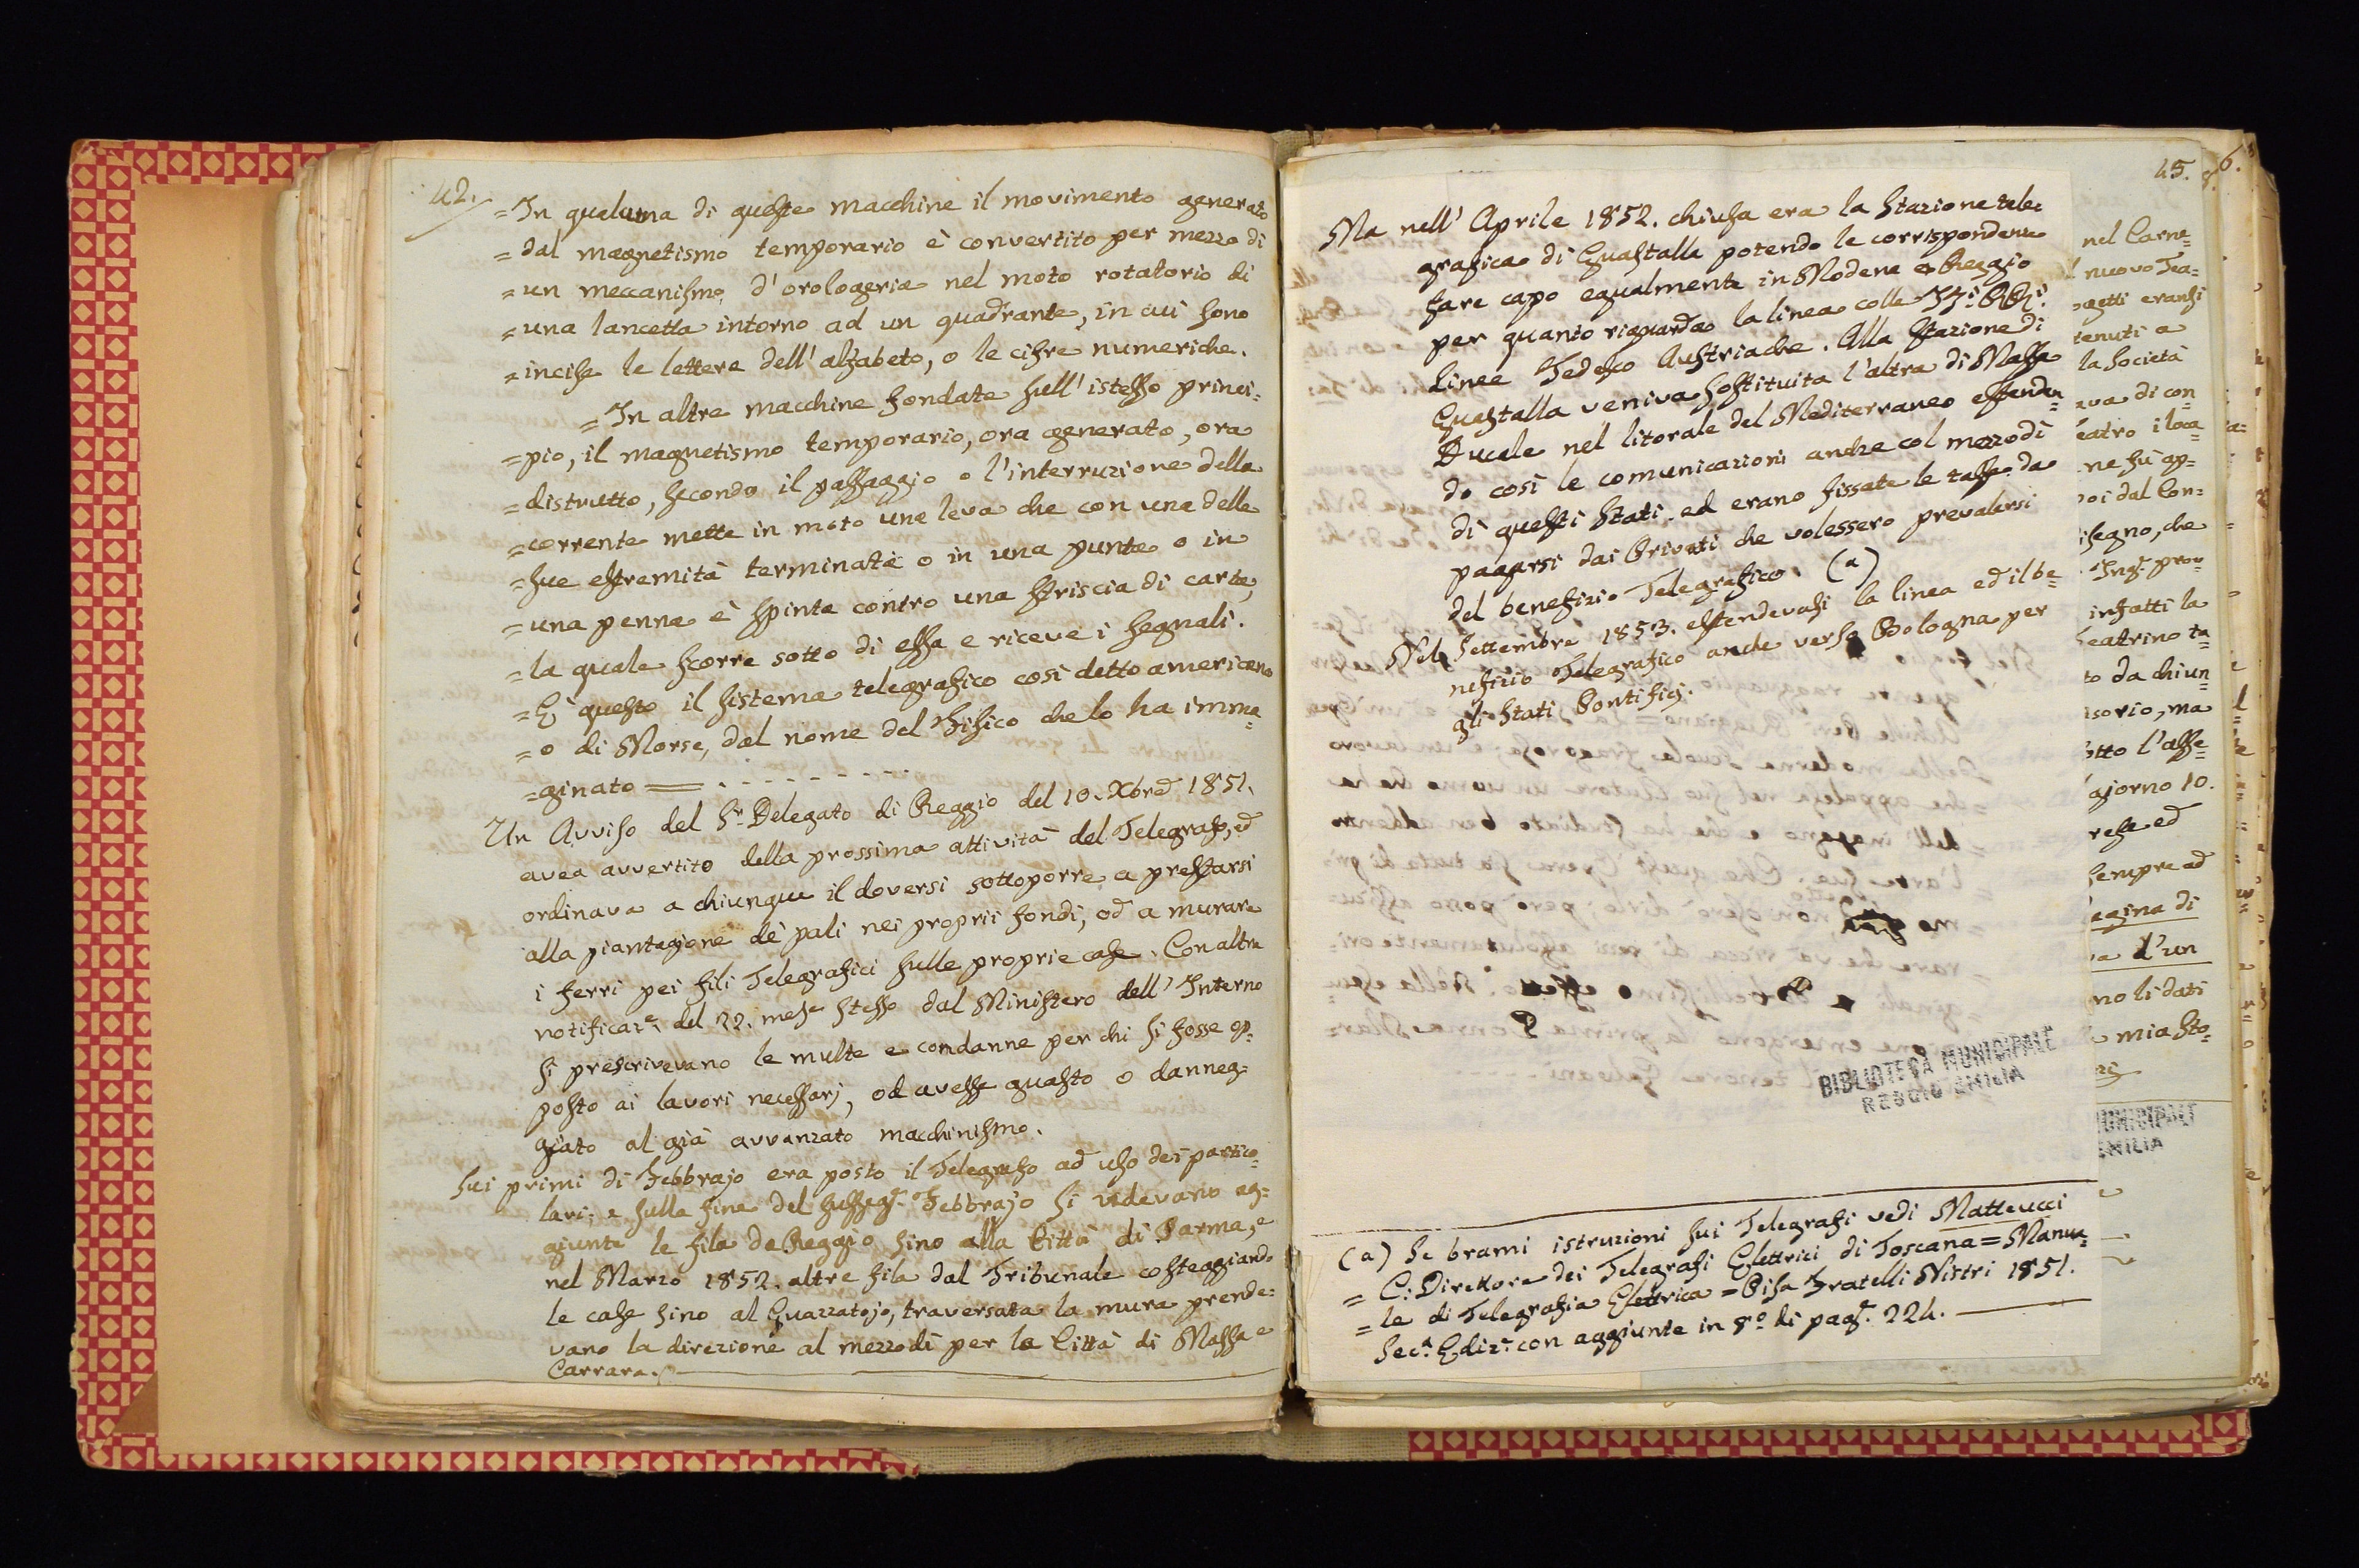 42.
=In qualuna di queste macchine il movimento generato
=dal magnetismo temporario è convertito per mezzo di
=un meccanismo d'orologeria nel moto rotatorio di
=una lancetta intorno ad un quadrante, in cui sono
=incise le lettere dell'alfabeto, o le cifre numeriche.
=In altre macchine fondate sull'istesso princi=
=pio, il magnetismo temporario, ora generato, ora
=distrutto, secondo il passaggio o l'interruzione della
=corrente mette in moto una leva che con una delle
=sue estremità terminata o in una punta o in
=una penna è spinta contro una striscia di carta,
=la quale scorre sotto di essa e riceve i segnali.
=È questo il sistema telegrafico così detto americano
=o di Morse, dal nome del Fisico che lo ha imma=
=ginato = . - - - - - - - -
Un Avviso del Sr. Delegato di Reggio del 10. Xbre 1851.
avea avvertito della prossima attività del Telegrafo, ed
ordinava a chiunque il doversi sottoporre a prestarsi
alla piantagione de' pali nei proprii fondi, od a murare
i ferri pei fili Telegrafici sulle proprie case. Con altra
notificaze. del 22. mese stesso dal Ministero dell'Interno
si prescrivevano le multe e condanne per chi si fosse op=
posto ai lavori necessarj, od avesse guasto o danneg=
giato al già avvanzato macchinismo.
Sui primi di Febbrajo era posto il Telegrafo ad uso dei partico=
lari; e sulla fine del susseg. Febbrajo si vedevano ag=
giunte le fila da Reggio sino alla Città di Parma, e
nel Marzo 1852. altre fila dal Tribunale costeggiando
le case sino al Guazzatojo, traversata la mura prende=
vano la direzione al mezzodì per la Città di Massa e
Carrara.
Ma nell'Aprile 1852. chiusa era la Stazione tele=
grafica di Guastalla potendo le corrispondenze
fare capo egualmente in Modena e Reggio
per quanto riguarda la linea colle
Linee Tedesco Austriache. Alla Stazione di
Guastalla veniva sostituita l'altra di Massa
Ducale nel litorale del Mediterraneo estenden=
do così le comunicazioni anche col mezzodì
di questi Stati. ed erano fissate le tasse da
pagarsi dai Privati che volessero prevalersi
del benefizio Telegrafico. (a)
Nel Settembre 1853. estendevasi la linea ed il be=
nefizio Telegrafico anche verso Bologna per
gli Stati Pontificj.
BIBLIOTECA MUNICIPALE
REGGIO EMILIA
(a) Se brami istruzioni sui Telegrafi vedi Matteucci
= C: Direttore dei Telegrafi Elettrici di Toscana = Manua=
= le di Telegrafia Elettrica = Pisa Fratelli Nistri 1851.
Sec.a Ediz: con aggiunte in 8o. di pag. 224.
45.
6.
nel Carne=
nuovo Tea=
ogetti eransi
tenuti a
la Società
ava di con=
eatro i loca=
ne fù ap=
oi dal Con=
isegno, che
Ingr. prov=
infatti la
eatrino ta=
to da chiun=
isorio, ma
otto l'asse=
giorno 10.
rese ed
sempre ad
egina di
a d'un
no li dati
mia Sto=
MUNICIPALE
EMILIA